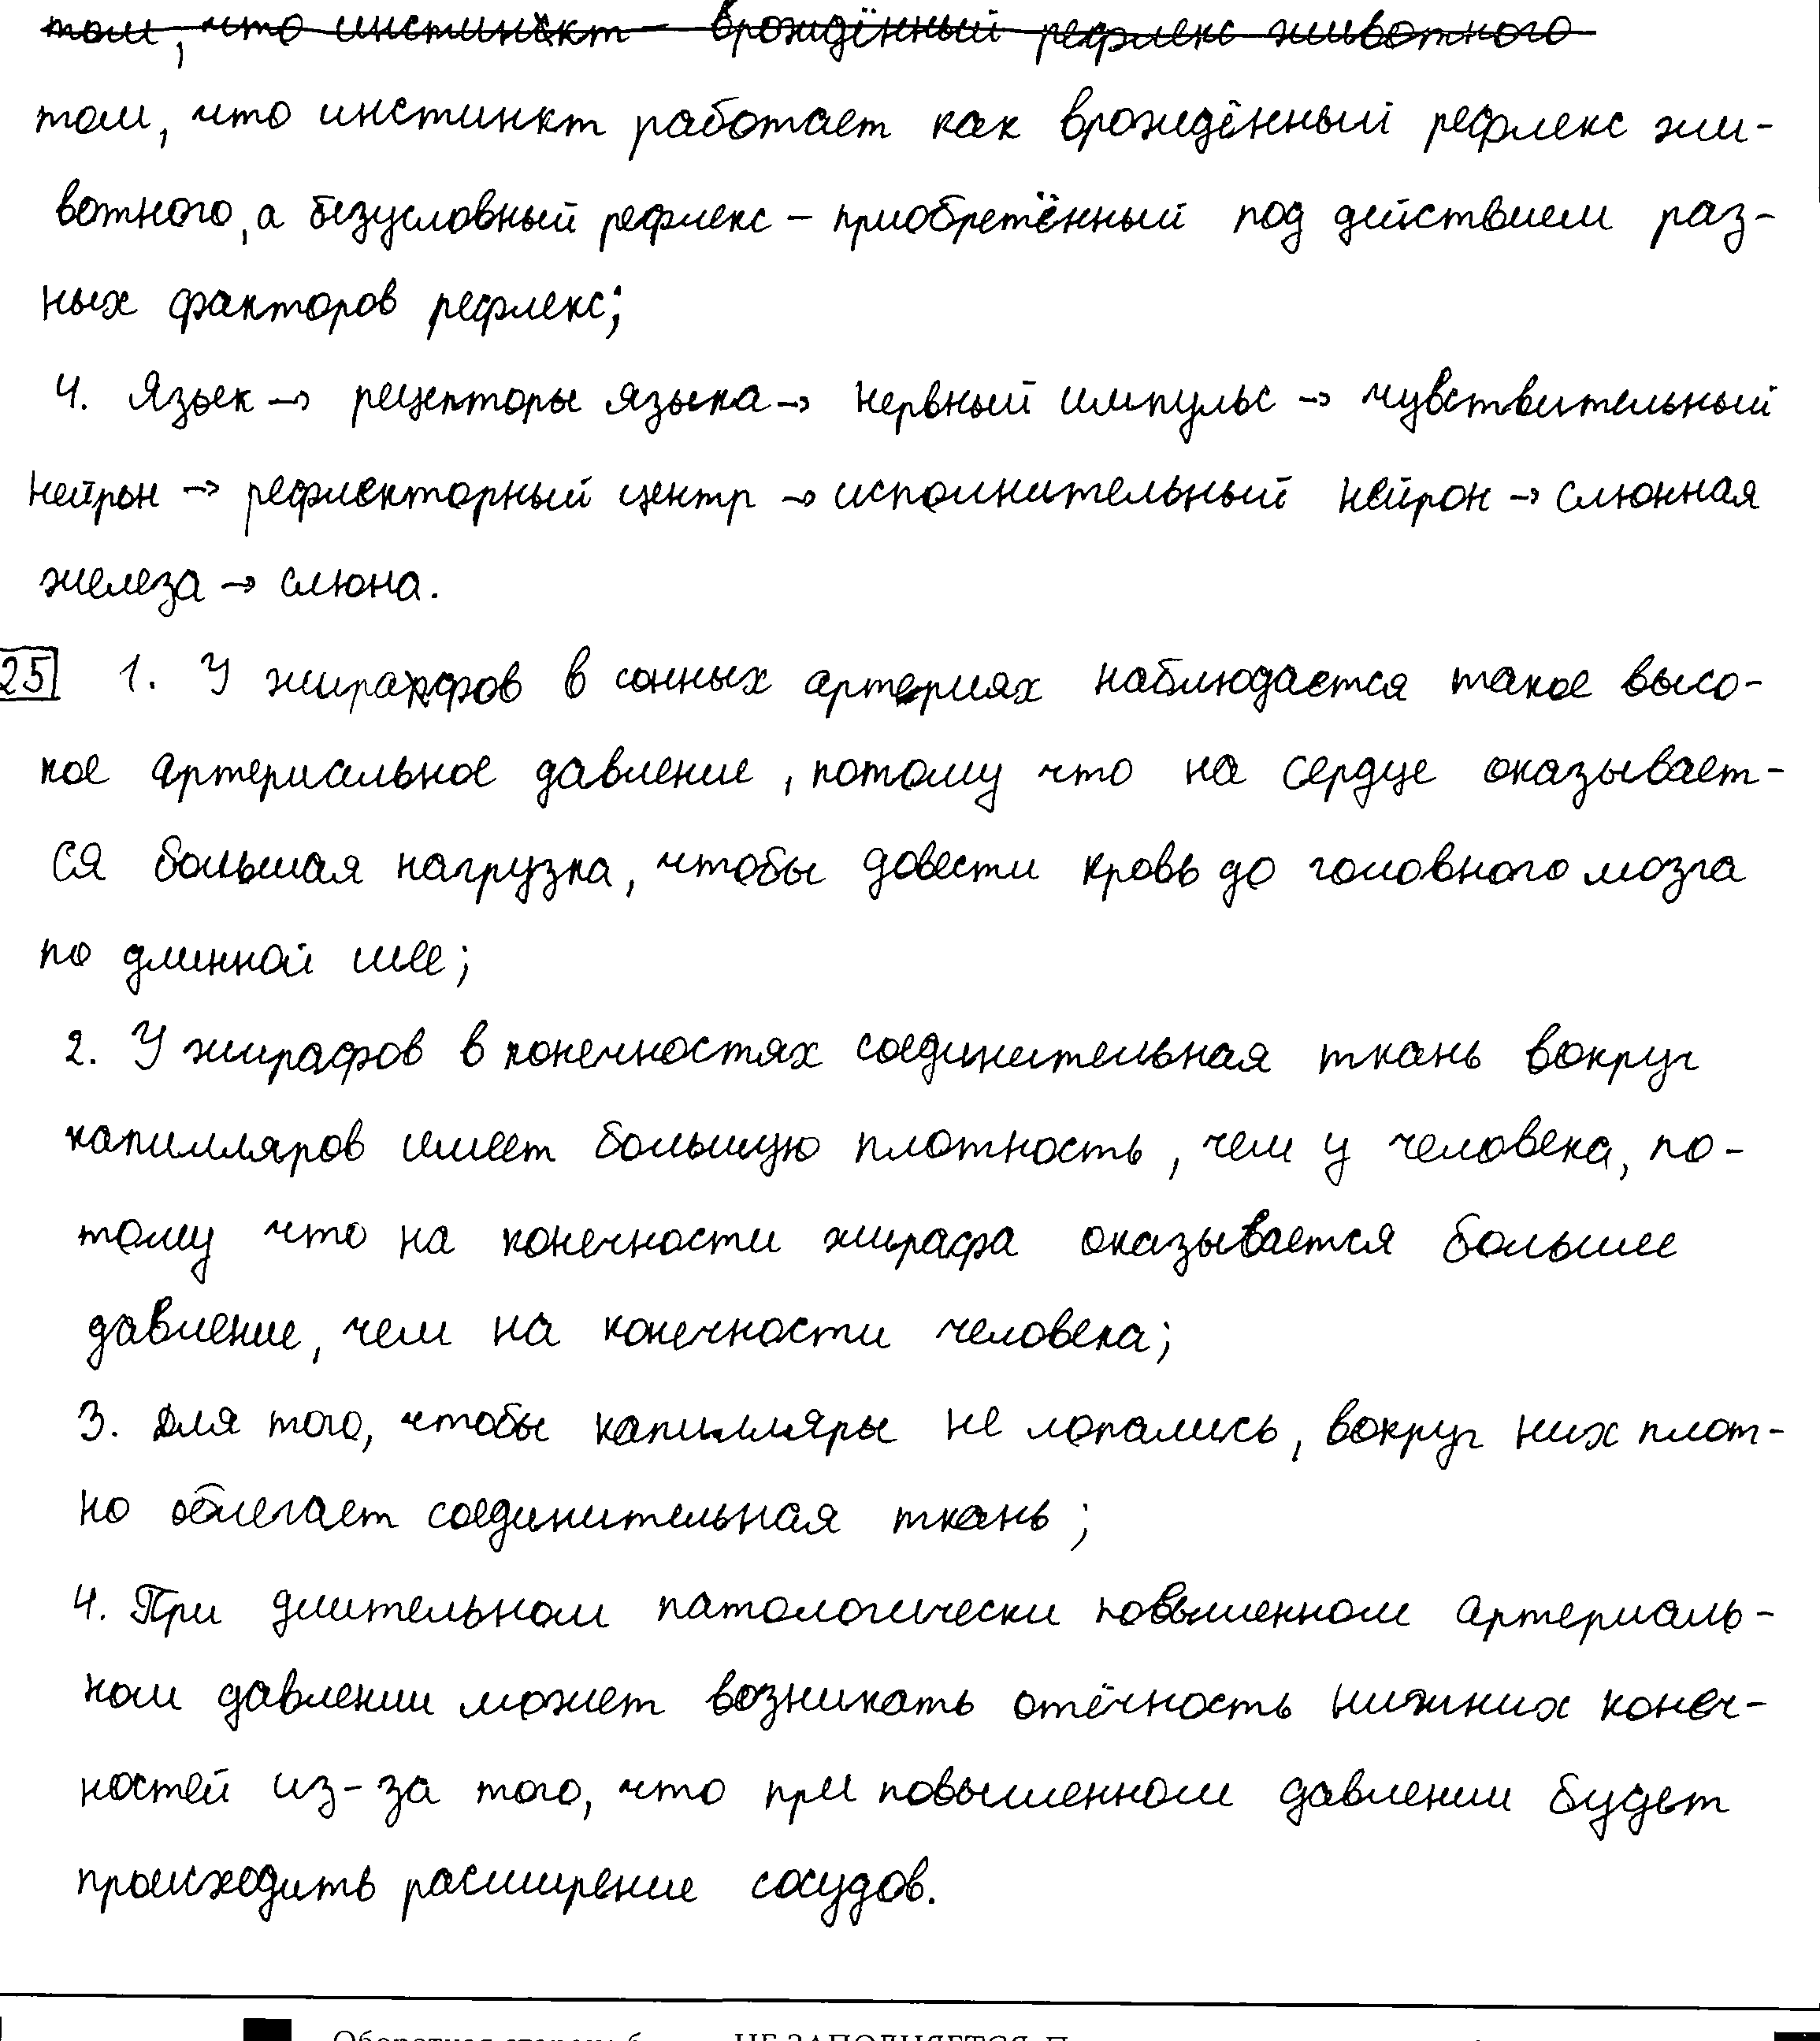 том, что инстинкт – врождённый рефлекс животного
том, что инстинкт работает как врождённый рефлекс жи-
вотного, а безусловный рефлекс – приобретённый под действием раз-
ных факторов рефлекс;
4. Язык → рецепторы языка → нервный импульс → чувствительный
нейрон → рефлекторный центр → исполнительный нейрон → слюнная
железа → слюна.
25 1. У жирафов в сонных артериях наблюдается такое высо-
кое артериальное давление, потому что на сердце оказывает-
ся большая нагрузка, чтобы довести кровь до головного мозга
по длинной шее;
2. У жирафов в конечностях соединительная ткань вокруг
капилляров имеет большую плотность, чем у человека, по-
тому что на конечности жирафа оказывается большее
давление, чем на конечности человека;
3. Для того, чтобы капилляры не лопались, вокруг них плот-
но облегает соединительная ткань;
4. При длительном патологически повышенном артериаль-
ном давлении может возникать отёчность нижних конеч-
ностей из-за того, что при повышенном давлении будет
происходить расширение сосудов.